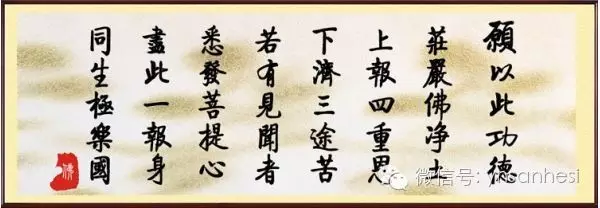 願以此功德
莊嚴佛净土
上報四重恩
下濟三途苦
若有見聞者
悉發菩提心
盡此一報身
同生極樂國
佛
微信号: nsanhesi